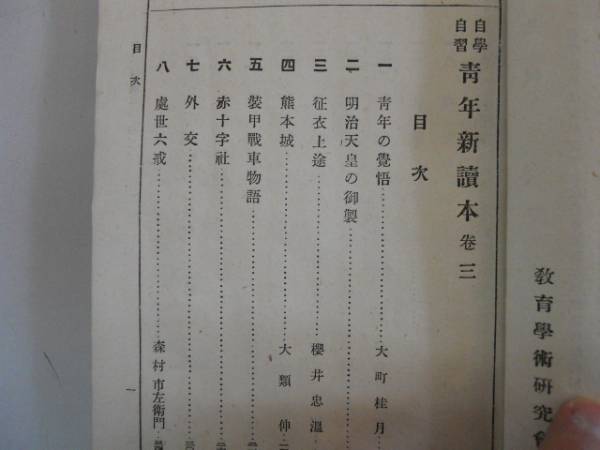 教育學術研究會
自學自習 靑年新讀本 卷三
目次
一 靑年の覺悟 大町桂月
二 明治天皇の御製
三 征衣上途 櫻井忠溫
四 熊本城 大類伸
五 裝甲戰車物語
六 赤十字社
七 外交
八 處世六戒 森村市左衞門
目次 一